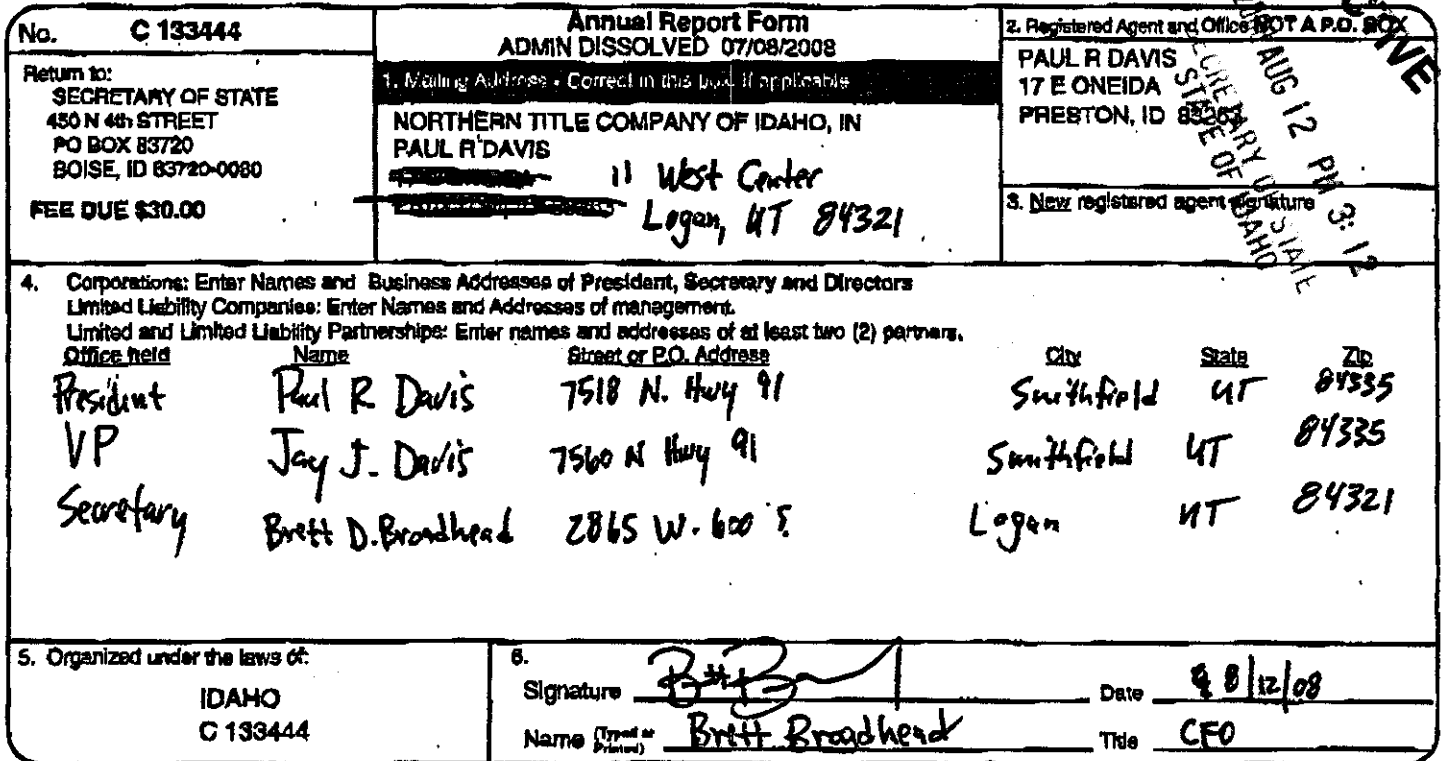 No. C 133444
Return to:
SECRETARY OF STATE
450 N 4th STREET
PO BOX 83720
BOISE, ID 83720-0080
FEE DUE $30.00
Annual Report Form
ADMIN DISSOLVED 07/08/2008
1. Mailing Address - Correct in this box if applicable
NORTHERN TITLE COMPANY OF IDAHO, IN
PAUL R DAVIS
11 West Center
Logan, UT 84321
2. Registered Agent and Office NOT A P.O. BOX
PAUL R DAVIS
17 E ONEIDA
PRESTON, ID
3. New registered agent signature
AUG 12 PM 3:12
SECRETARY OF STATE
STATE OF IDAHO
4. Corporations: Enter Names and Business Addresses of President, Secretary and Directors
Limited Liability Companies: Enter Names and Addresses of management.
Limited and Limited Liability Partnerships: Enter names and addresses of at least two (2) partners.
Office held Name Street or P.O. Address City State Zip
President Paul R Davis 7518 N. Hwy 91 Smithfield UT 84335
VP Jay J. Davis 7560 N Hwy 91 Smithfield UT 84335
Secretary Brett D. Broadhead 2865 W. 600 S. Logan UT 84321
5. Organized under the laws of:
IDAHO
C 133444
6.
Signature Date 8/12/08
Name (Typed or Printed) Brett Broadhead Title CFO